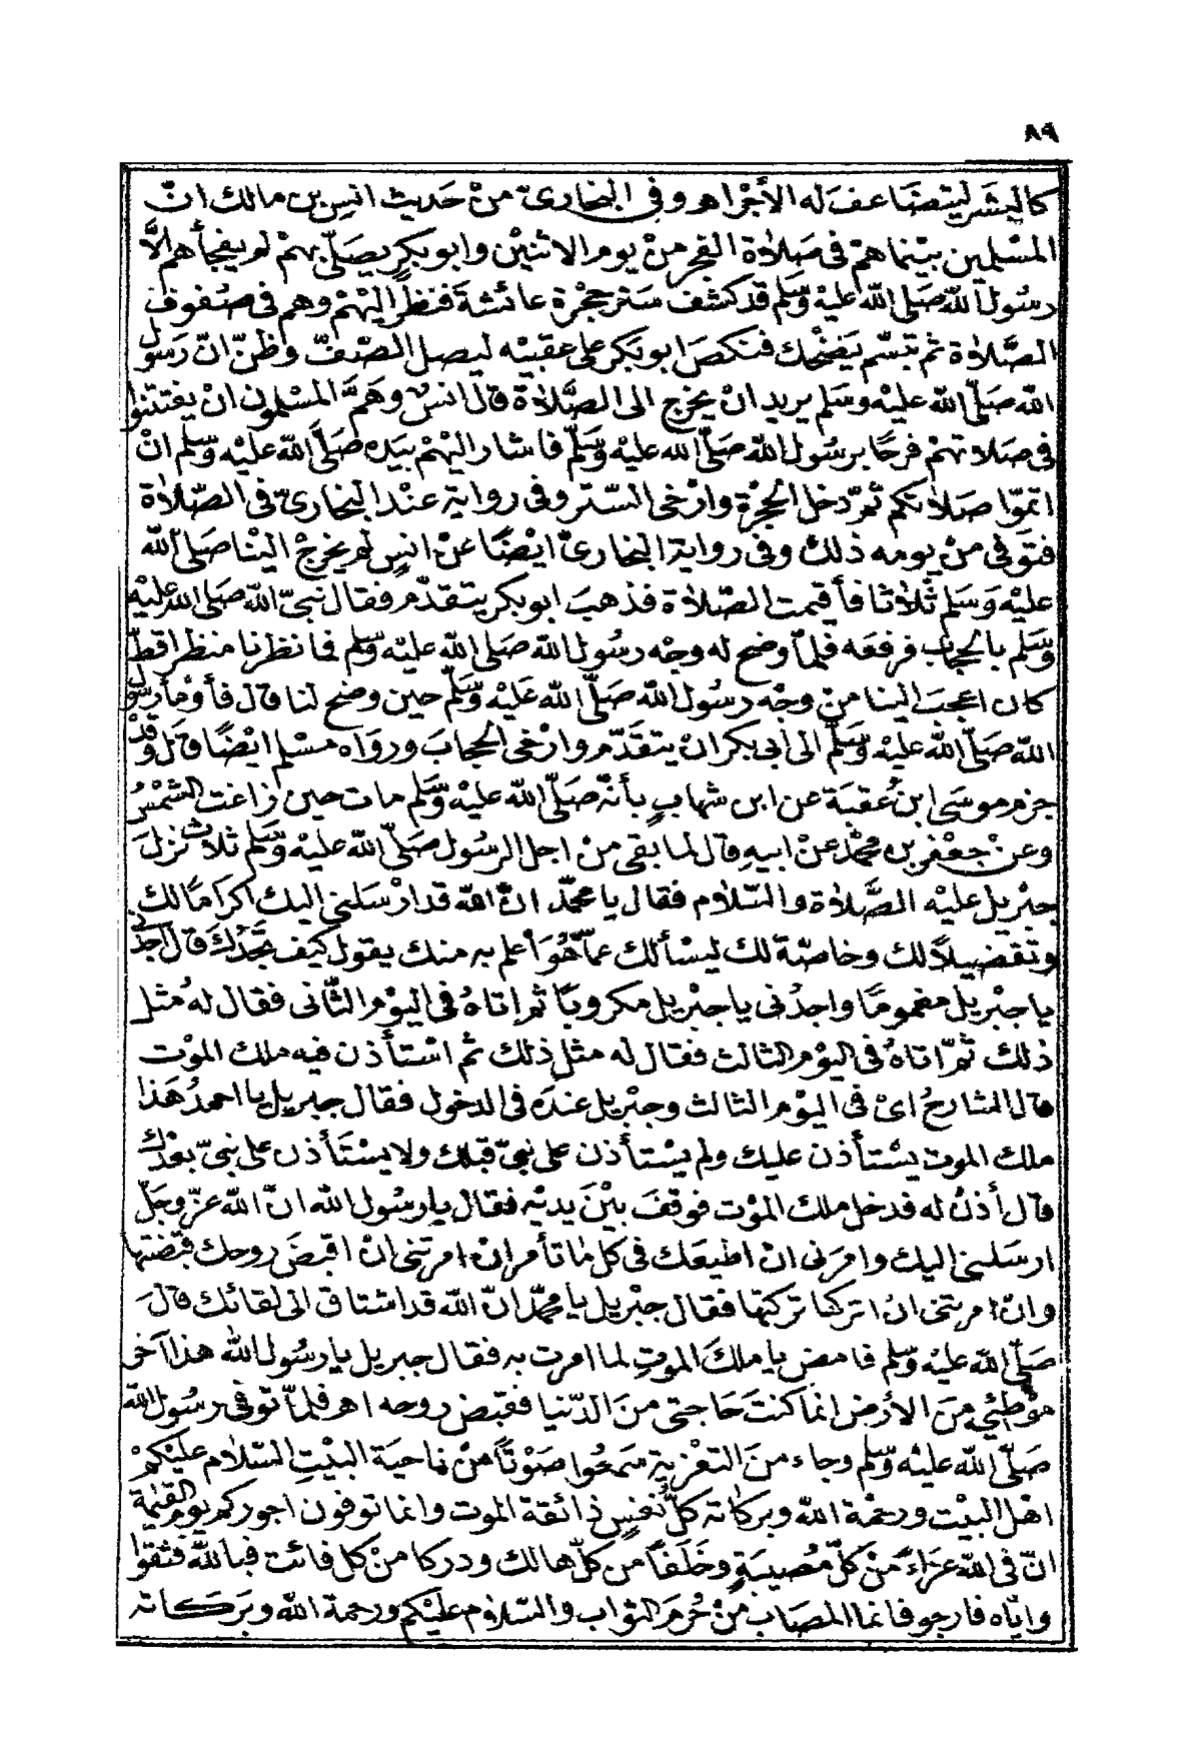 ٨٩
كالبشر ليتضاعف له الأجر اهـ وفى البخارىّ منْ حَديث انسِ بن مالك انّ
المسْلِمين بيْنما همْ فى صَلاٰة الفجر منْ يوم الاثنيْن وابو بكرٍ يصَلّى بهمْ لم يفجأهم الاَّ
رسُول اللهّ صَلى الله عليْه وَسَّلم قد كشف سَتر حجْرة عائشة فنظر اليْهمْ وهم فى صفوف
الصَّلاٰة ثم تبسّم يَضْحك فنكصَ ابو بَكر على عقبيْه ليصل الصّفّ وظنّ انّ رَسول
اللهّ صَلىّ الله عليْه وسَلم يريد انْ يخرج الى الصَّلاٰة قال انسٌ وهَمَّ المسْلمون انْ يفتتنوا
فى صَلاتهمْ فرحًا برسُول اللهّ صَلىّ الله عليْه وَسَلّم فاشار اليْهمْ بيَده صَلىَّ اللهّ عليْه وَسلّم انْ
اتمّوا صَلاٰتكم ثمّ دخل الحجْرة وارْخى السّتر وفى رواية عنْد البخارىّ فى الصّلاٰة
فتوَفى منْ يومه ذلك وفى رواية البخارىّ ايْضًا عنْ انسٍ لم يخرجْ اليْنا صَلى الله
عليْه وَسَلم ثلاٰثا فأقيمت الصّلاٰة فذهبَ ابو بكر يتقدّم فقال نبىّ اللهّ صَلى الله عليْه
وَسَّلم بالحجاب فرفعَه فلمّا وضح له وجْه رسُول اللهّ صَلى الله عليْه وسَلم فما نظرنا منظرا قطّ
كان اعجبَ الينا منْ وجْه رسُول اللهّ صَلىّ الله عَليْه وَسَلّم حين وضح لنا قال فأوْمأ رسول
اللهّ صَلىّ الله عليْه وَسَلّم الى أبى بكر انْ يتقَدّم وارْخى الحجابَ وروَاه مسْلم ايْضًا قال وقدْ
جزم موسَى ابنُ عقبَة عن ابن شهابٍ بأنّه صَلىّ الله عليْه وَسَلّم مات حين زاغت الشمْسُ
وعنْ جعْفر بن محمّد عنْ ابيهِ قال لما بقى منْ اجل الرسُول صَلىّ الله عليْه وَسَلّم ثلاث نزلَ
جبْريل عليْه الصَّلاٰة والسّلاٰم فقال يا محمّد انّ الله قد ارْسَلنى اليك اكرامًا لك
وتفضيلاً لك وخاصّة لك ليسْألك عمّا هُوَ أعلم به منك يقول كيف تجدُك قال اجدنى
يا جبْريل مغمومًا واجدُنى يا جبْريل مكروبًا ثم اتاهُ فى اليوْم الثّانى فقال لهُ مثل
ذلك ثمّ اتاهُ فى اليوْم الثالث فقال له مثل ذلك ثم اسْتأذن فيه ملك الموْت
قال الشارحُ اىْ فى اليوْم الثالث وجبْريل عندَه فى الدخول فقال جبريل يا احمدُ هَذا
ملك الموت يسْتأذن عليك ولم يسْتأذن على نبىّ قبلك ولا يسْتَأذن على نبىّ بعْدك
قال أذنُ له فدخل ملك الموْت فوقفَ بيْنَ يديْه فقال يا رسُول الله انّ الله عزّ وجلّ
ارسَلنى اليك وامرَنى انْ اطيعَك فى كل ما تأمر انْ امرتنى انْ اقبضَ روحك قبَضتها
وانْ امرتنى انْ اتركها تركتها فقال جبْريل يا محمّد انّ الله قد اشتاق الى لقائك قال
صَلىّ الله عليْه وَسلّم فامض يا ملكَ الموتِ لما امرت به فقال جبريل يا رسُول اللهُ هذا آخر
موْطئى منَ الأرْض انما كنتَ حَاجتى منَ الدّنيا فقبَض روحه اهـ فلمّا توفى رسُول اللهّ
صَلىّ الله عليْه وَسلّم وجاءَ منَ التعْزية سَمعُوا صَوْتًا منْ ناحيَة البيْتِ السّلاٰم عليْكمْ
اهْل البيْت ورحمْة اللهّ وبركاته كلّ نفسٍ ذائقة الموت وانما توفون اجوركم يوم القيٰمة
انّ فى الله عزاءً منْ كلّ مُصيبَةٍ وخَلفًا من كلّ هالك ودركا منْ كل فائت فبالله فثقوا
وايّاه فارجو فانما المصَاب منْ حُرمَ الثواب والسّلاٰم عليْكم ورحمة الله وبَركَاته